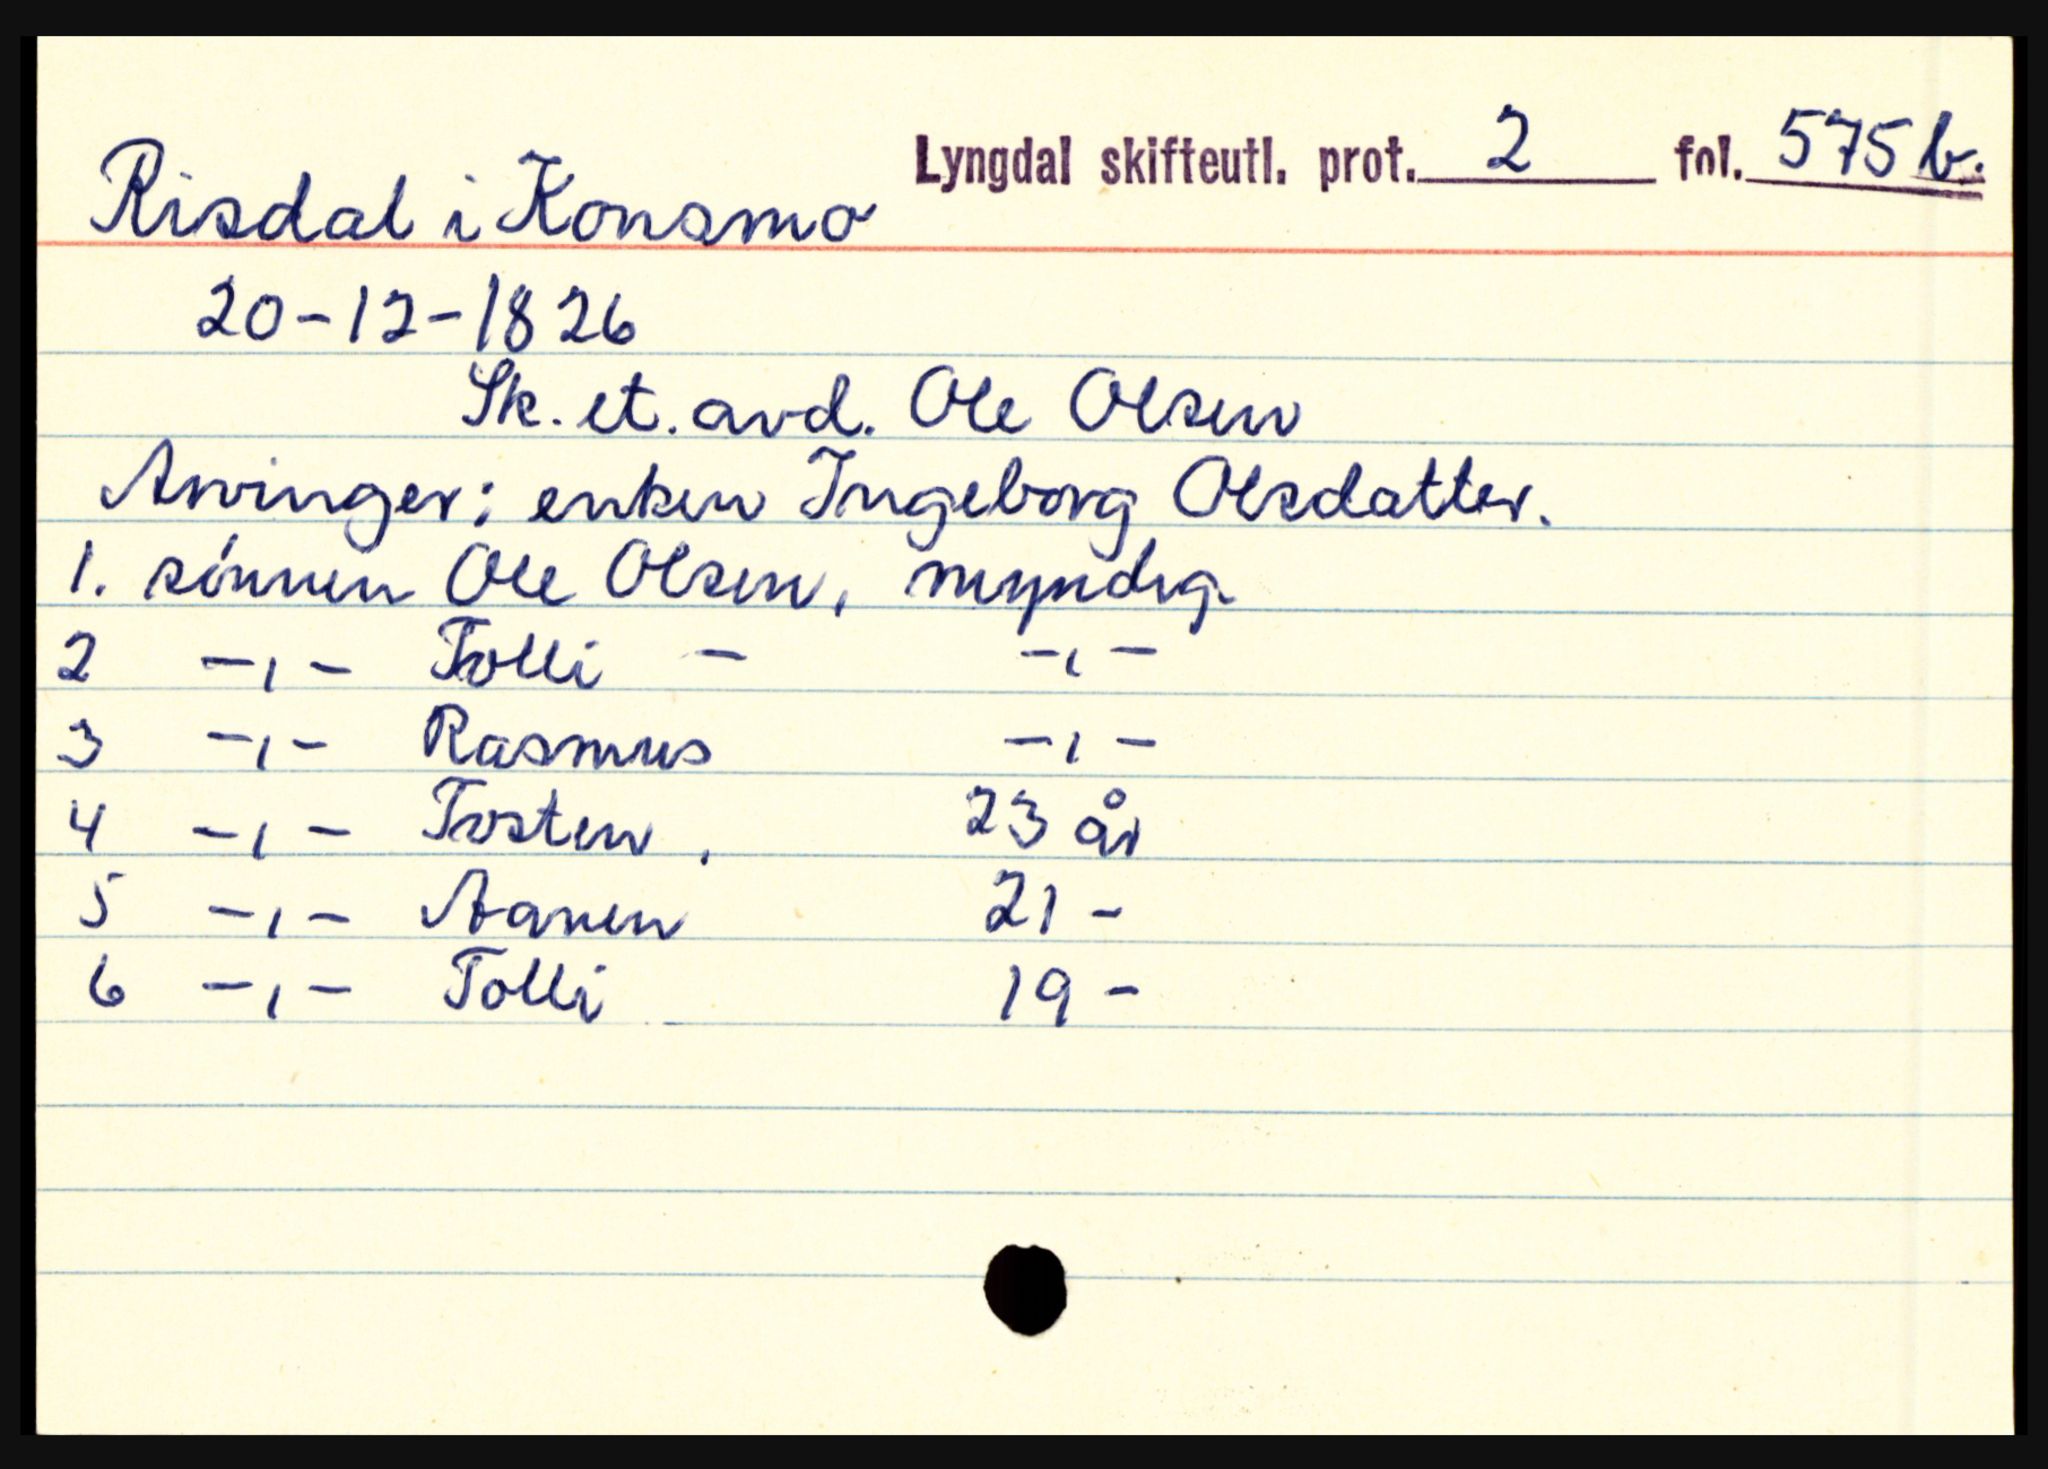 Lyngdal skifteutl. prot. 2 fol. 575 b.
Risdal i Konsmo
20-12-1826
Sk. et. avd. Ole Olsen
Arvinger: enken Ingeborg Olsdatter.
1. sønnen Ole Olsen, myndig.
2 -,- Tolli - -,-
3 -,- Rasmus -,-
4 -,- Tosten. 23 år
5 -,- Aanen 21 -
6 -,- Tolli 19 -